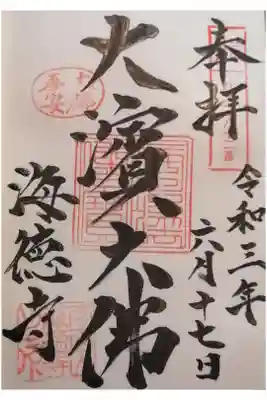 奉拝
令和三年
六月十七日
大濱大佛
海徳寺